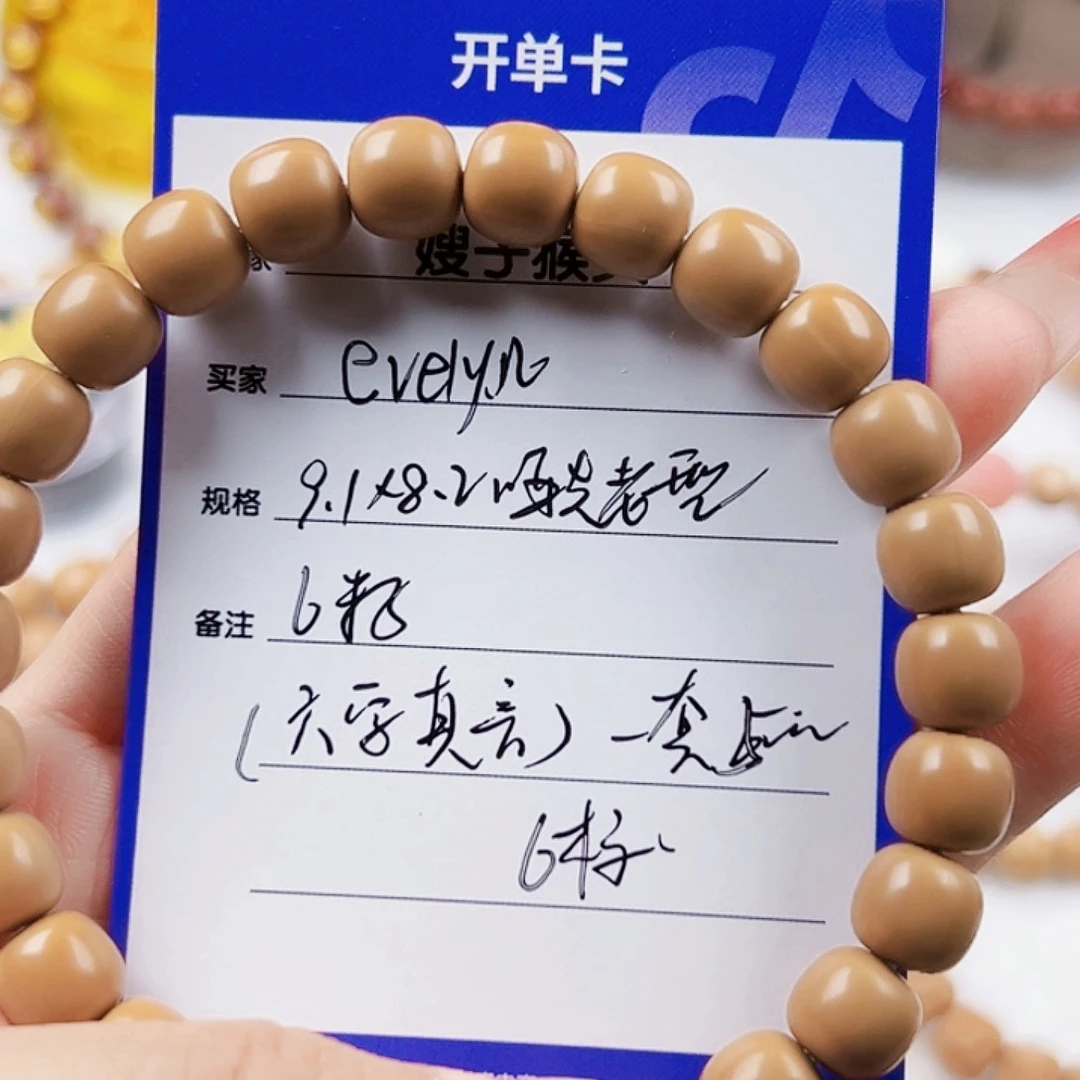 开单卡
家 嫂子猴
买家 evelyn
规格 9.1×8.2 哑光老型
备注 6粒
(六字真言) 一套
6粒